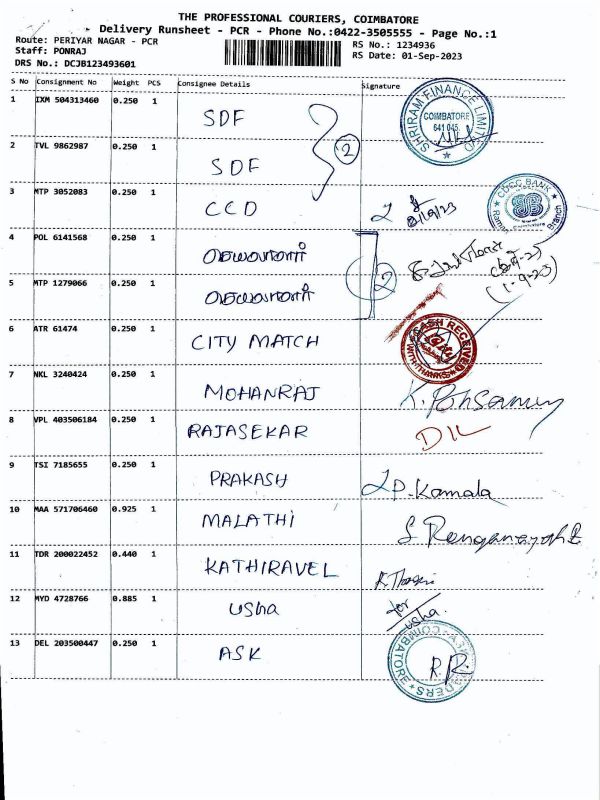 THE PROFESSIONAL COURIERS, COIMBATORE
Delivery Runsheet - PCR - Phone No.:0422-3505555 - Page No.:1
Route: PERIYAR NAGAR - PCR
RS No.: 1234936
Staff: PONRAJ
RS Date: 01-Sep-2023
DRS No.: DCJB123493601
S No Consignment No Weight PCS Consignee Details Signature
1 IXM 504313460 0.250 1 SDF SHRIRAM FINANCE LIMITED COIMBATORE 641 045.
2 TVL 9862987 0.250 1 SDF 2
3 MTP 3052083 0.250 1 CCD CDCC BANK Branch
4 POL 6141568 0.250 1
5 MTP 1279066 0.250 1 2 (1-9-23)
6 ATR 61474 0.250 1 CITY MATCH CASH RECEIVED WITH THANKS
7 NKL 3240424 0.250 1 MOHANRAJ K. Ponsamy
8 VPL 403506184 0.250 1 RAJASEKAR
9 TSI 7185655 0.250 1 PRAKASH P. Kamala
10 MAA 571706460 0.925 1 MALATHI
11 TDR 200022452 0.440 1 KATHIRAVEL
12 MYD 4728766 0.885 1 usha for usha.
13 DEL 203500447 0.250 1 ASK COIMBATORE